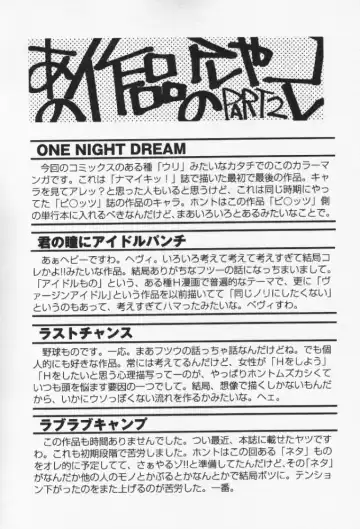 あの作品のアレやコレ PART2
ONE NIGHT DREAM
今回のコミックスのある種「ウリ」みたいなカタチでのこのカラーマ
ンガです。これは「ナマイキッ！」誌で描いた最初で最後の作品。キャ
ラを見てアレッ？と思った人もいると思うけど、これは同じ時期にやっ
てた「ピ〇ッツ」誌の作品のキャラ。ホントはこの作品「ピ〇ッツ」側
の単行本に入れるべきなんだけど、まあいろいろとあるみたいなことで。
君の瞳にアイドルパンチ
あぁヘビーですわ。ヘヴィ。いろいろ考えて考えて考えすぎて結局コ
レかよ!!みたいな作品。結局ありがちなフツーの話になっちまいまして。
「アイドルもの」という、ある種H漫画で普遍的なテーマで、更に「ヴ
ァージンアイドル」という作品を以前描いてて「同じノリにしたくない」
というのもあって、考えすぎてハマったみたいな。ベヴィすわ。
ラストチャンス
野球ものです。一応。まあフツウの話っちゃ話なんだけどね。でも個
人的にも好きな作品。常には考えてるんだけど、女性が「Hをしよう」
「Hをしたいと思う心理描写ってーのが、やっぱりホントムズカシくて
いつも頭を悩ます要因の一つでして。結局、想像で描くしかないもんだ
から、いかにウソっぽくない流れを作るかみたいな。ヘェ。
ラブラブキャンプ
この作品も時間ありませんでした。つい最近、本誌に載せたヤツです
わ。これも初期段階で苦労しました。ホントはこの回ある「ネタ」もの
をオレ的に予定してて、さぁやるゾ!!と準備してたんだけど、その「ネタ」
がなんだか他の人のモノとかぶるとかなんとかで結局ボツに。テンショ
ン下がったのをまた上げるのが苦労した。一番。